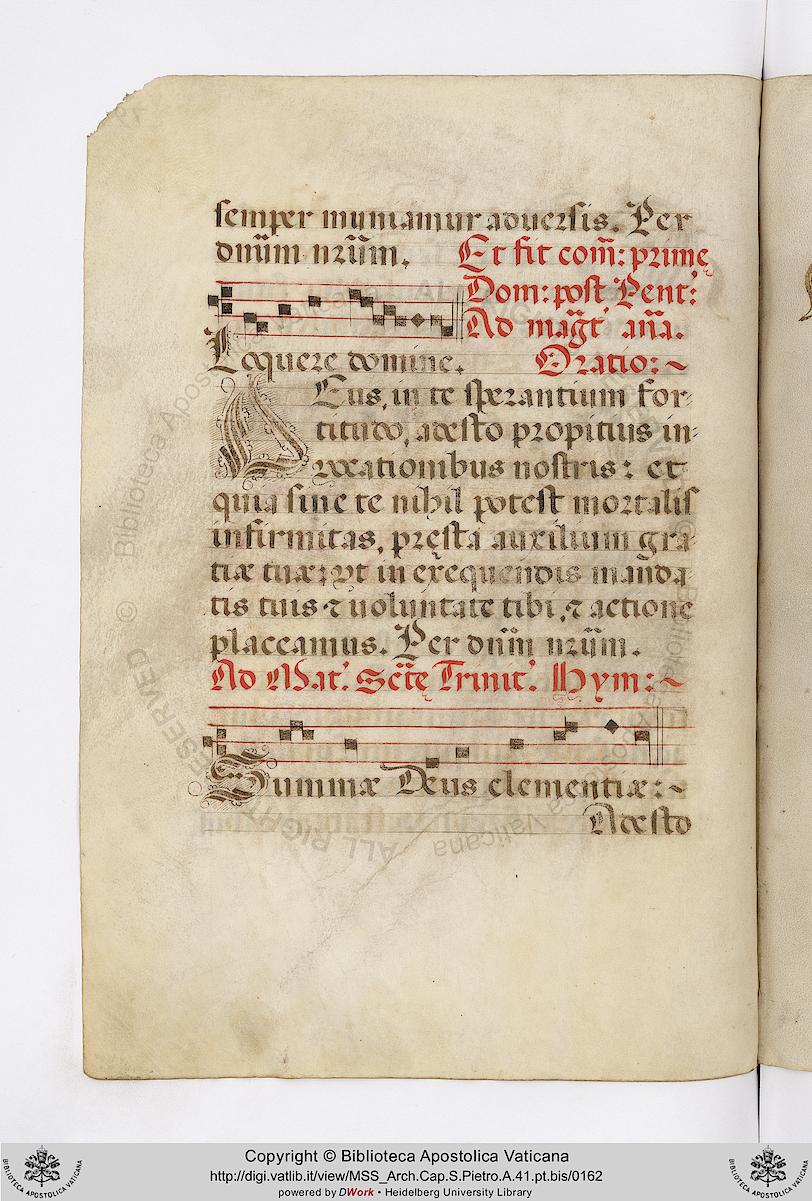 semper muniamur aduersis. Per
dnũm nrũm. Et fit com̃: prime
Dom: post Pent:
Ad mag̃t añа.
Loquere domine. Oratio:~
Deus, in te sperantium for-
titudo, adesto propitius in-
uocationibus nostris: et
quia sine te nihil potest mortalis
infirmitas, pręsta auxilium gra-
tiæ tuæ: vt in exequendis manda-
tis tuis ⁊ uoluntate tibi, ⁊ actione
placeamus. Per dnũm nrũm.
Ad Mat: Sctę Trinit: Hym:~
Summæ Deus clementiæ:~
Adesto
Copyright © Biblioteca Apostolica Vaticana
http://digi.vatlib.it/view/MSS_Arch.Cap.S.Pietro.A.41.pt.bis/0162
powered by DWork • Heidelberg University Library